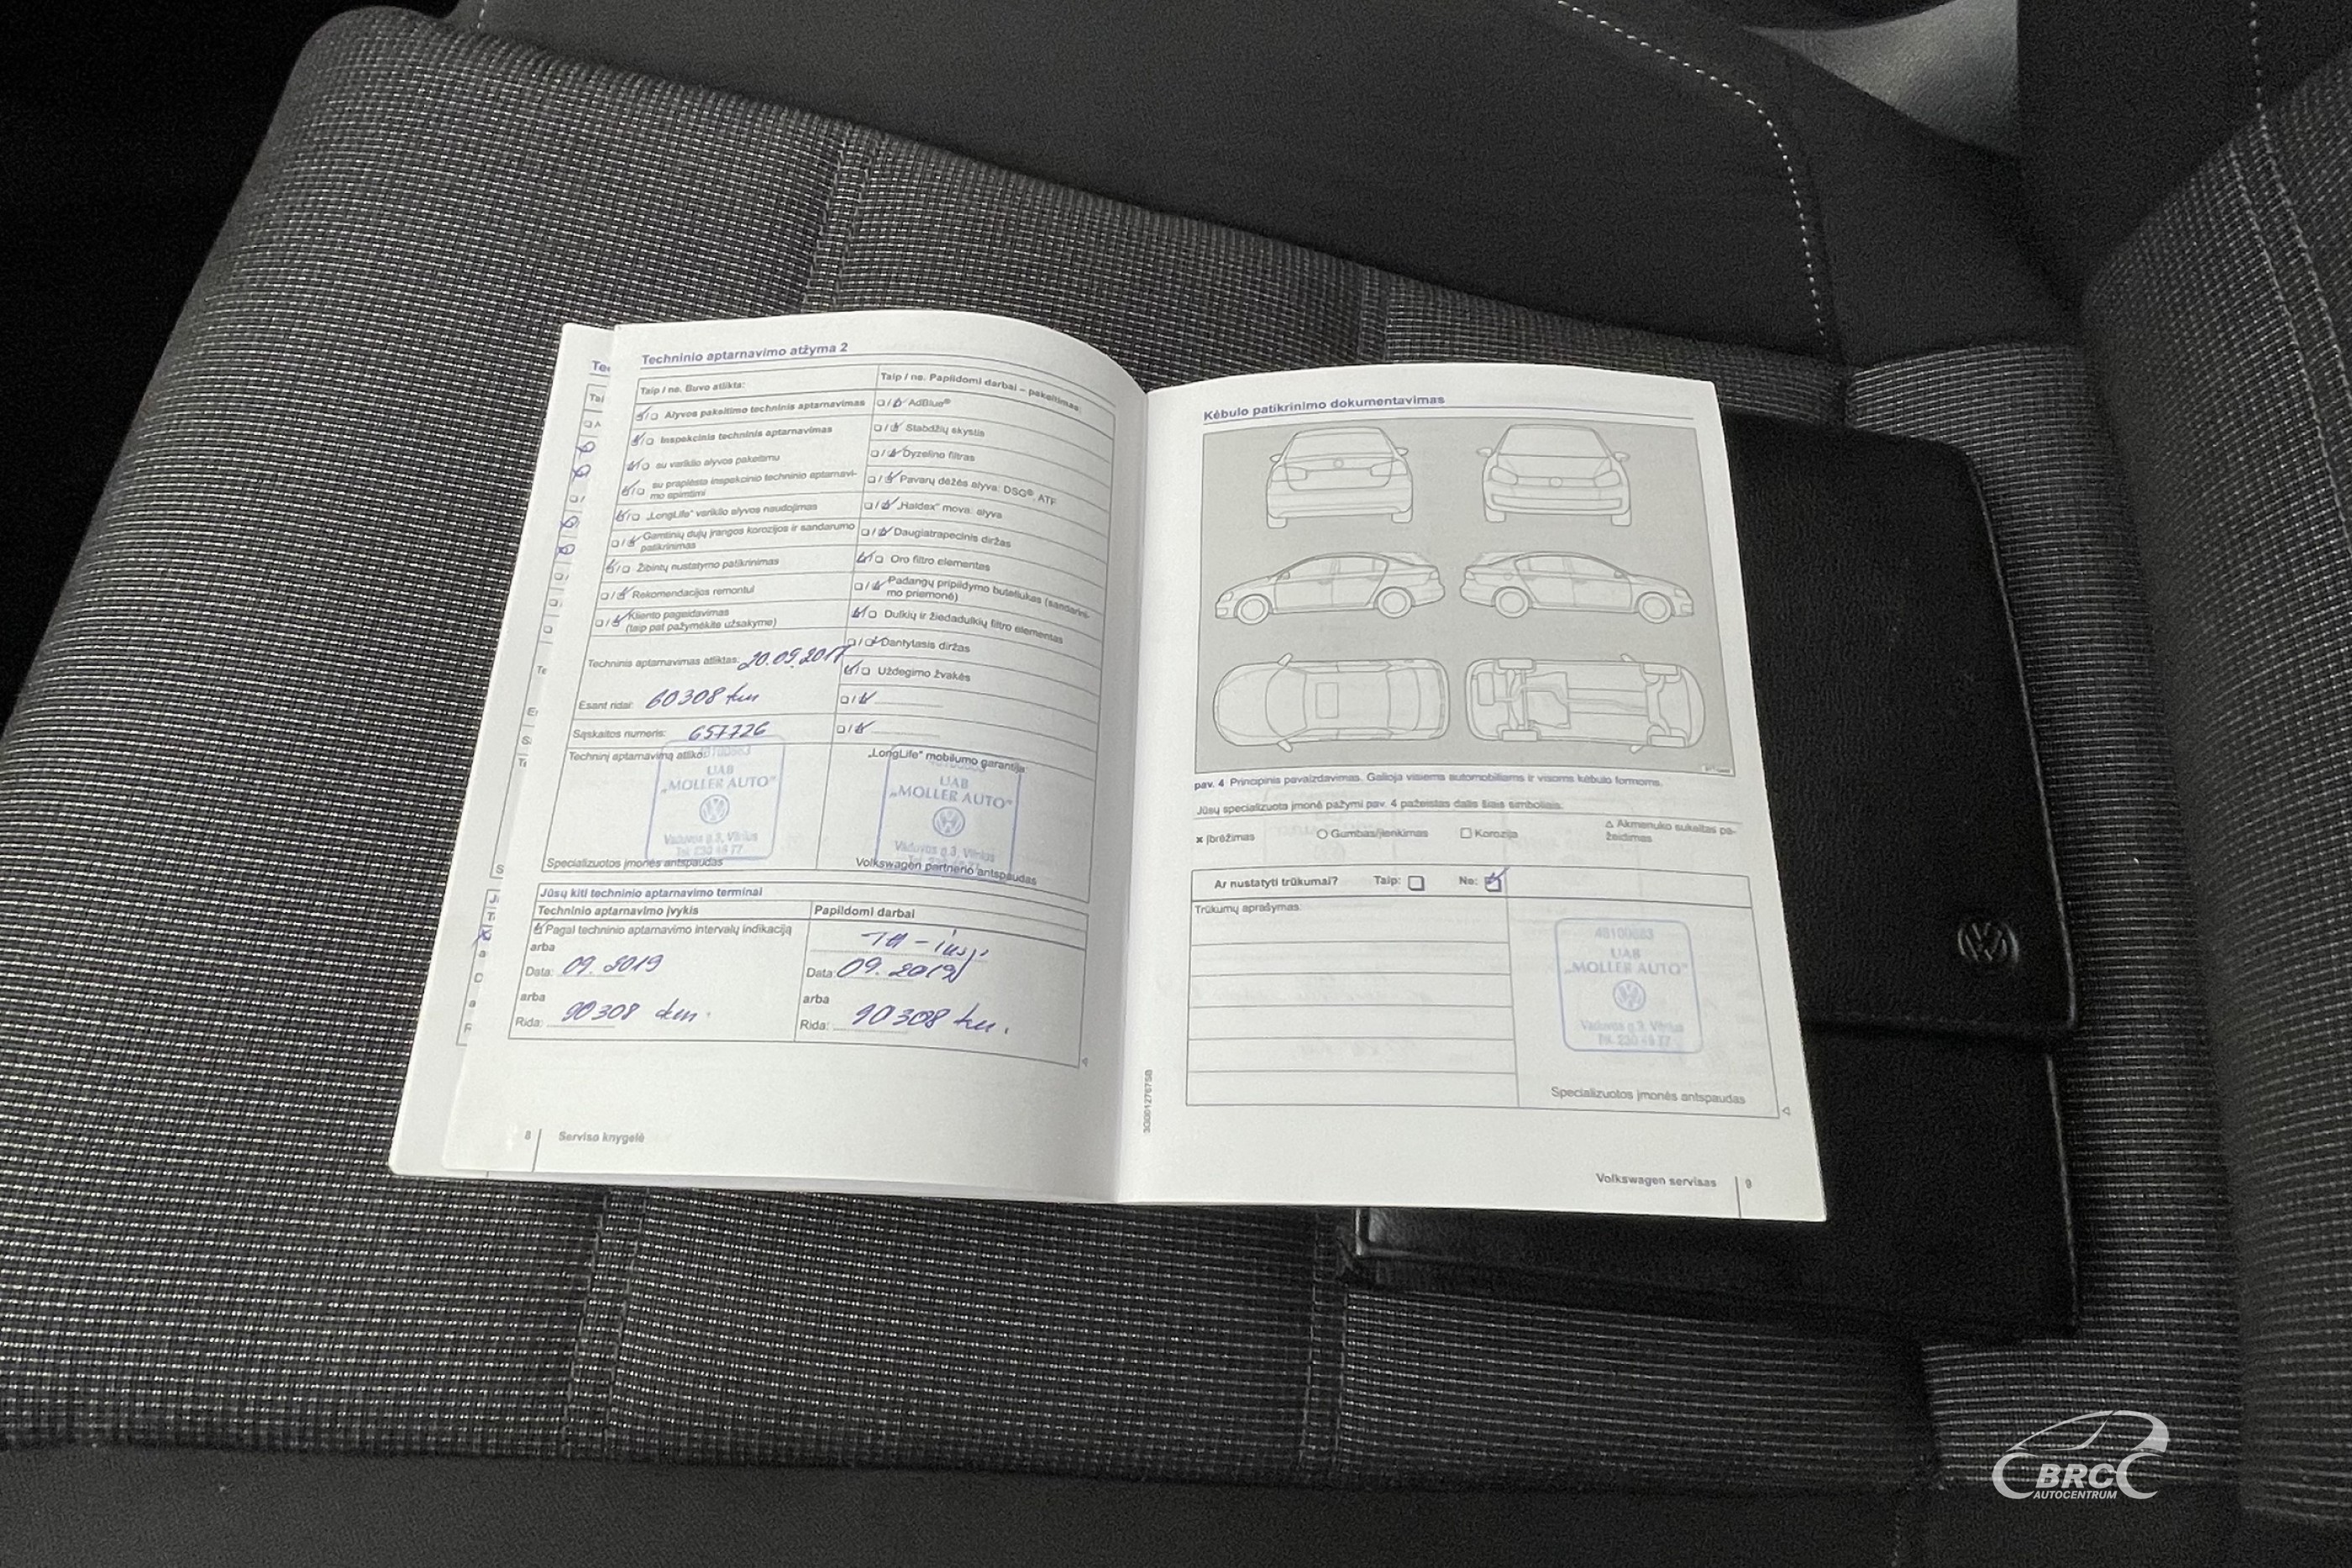 Techninio aptarnavimo atžyma 2
Taip / ne. Buvo atlikta:
Alyvos pakeitimo techninis aptarnavimas
Inspekcinis techninis aptarnavimas
su variklio alyvos pakeitimu
su praplėsta inspekcinio techninio aptarnavi-
mo apimtimi
„LongLife“ variklio alyvos naudojimas
Gamtinių dujų įrangos korozijos ir sandarumo
patikrinimas
Žibintų nustatymo patikrinimas
Rekomendacijos remontui
Kliento pageidavimas
(taip pat pažymėkite užsakyme)
Techninis aptarnavimas atliktas: 20.09.2017
Esant ridai: 60308 km
Sąskaitos numeris: 657726
Techninį aptarnavimą atliko:
UAB
„MOLLER AUTO“
Vaduvos g.3, Vilnius
Tel. 230 49 77
Specializuotos įmonės antspaudas
Taip / ne. Papildomi darbai – pakeitimas:
AdBlue®
Stabdžių skystis
Dyzelino filtras
Pavarų dėžės alyva: DSG®, ATF
„Haldex“ mova: alyva
Daugiatrapecinis diržas
Oro filtro elementas
Padangų pripildymo buteliukas (sandarini-
mo priemonė)
Dulkių ir žiedadulkių filtro elementas
Dantytasis diržas
Uždegimo žvakės
„LongLife“ mobilumo garantija
UAB
„MOLLER AUTO“
Vaduvos g.3, Vilnius
Volkswagen partnerio antspaudas
Jūsų kiti techninio aptarnavimo terminai
Techninio aptarnavimo įvykis
Pagal techninio aptarnavimo intervalų indikaciją
arba
Data: 09.2019
arba
Rida: 90308 km.
Papildomi darbai
Data: 09.2019
arba
Rida: 90308 km.
8
Serviso knygelė
Kėbulo patikrinimo dokumentavimas
pav. 4 Principinis pavaizdavimas. Galioja visiems automobiliams ir visoms kėbulo formoms.
Jūsų specializuota įmonė pažymi pav. 4 pažeistas dalis šiais simboliais:
x Įbrėžimas
Gumbas/įlenkimas
Korozija
Akmenuko sukeltas pa-
žeidimas
Ar nustatyti trūkumai? Taip: Ne:
Trūkumų aprašymas:
48100883
UAB
„MOLLER AUTO“
Vaduvos g.3, Vilnius
Tel. 230 49 77
Specializuotos įmonės antspaudas
3G0012767SB
Volkswagen servisas
9
BRC
AUTOCENTRUM